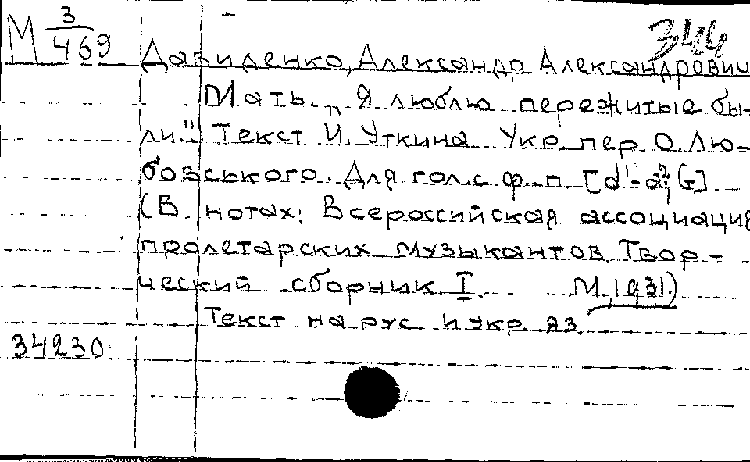 М 3/469
344
Давиденко, Александр Александрович
Мать. „Я люблю пережитые бы-
ли." Текст И. Уткина Укр пер О Лю-
бовського. Для гол. с ф-п
(В нотах: Всероссийская ассоциация
пролетарских музыкантов Твор-
ческий сборник I. М., 1931)
Текст на рус и укр яз
34230